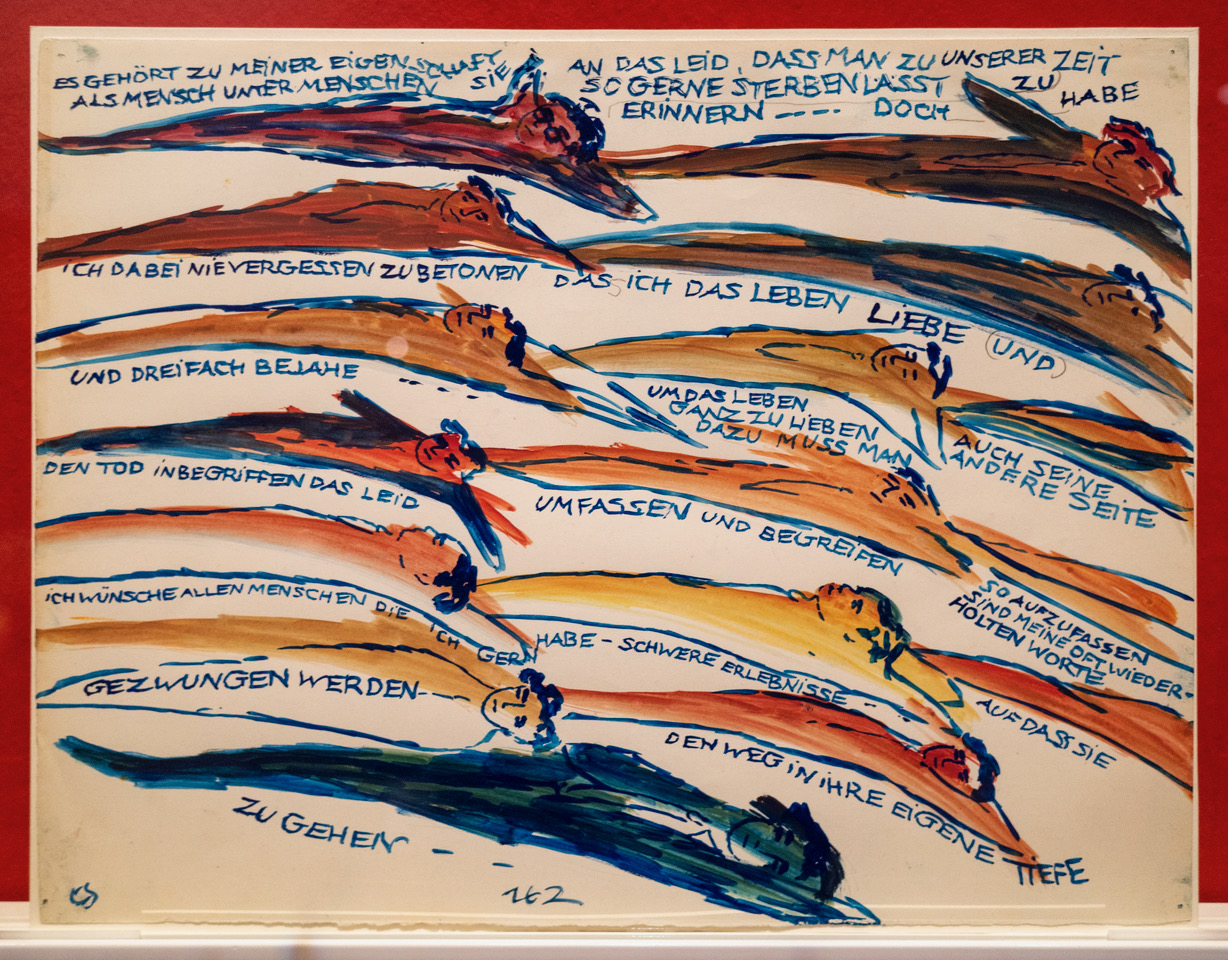 ES GEHÖRT ZU MEINER EIGENSCHAFT
ALS MENSCH UNTER MENSCHEN SIE
AN DAS LEID, DASS MAN ZU UNSERER ZEIT
SO GERNE STERBEN LÄSST ZU
ERINNERN ---- DOCH HABE
ICH DABEI NIE VERGESSEN ZU BETONEN
DAS ICH DAS LEBEN LIEBE (UND)
UND DREIFACH BEJAHE ----
UM DAS LEBEN
GANZ ZU LIEBEN
DAZU MUSS MAN
AUCH SEINE
ANDERE SEITE
DEN TOD INBEGRIFFEN DAS LEID
UMFASSEN UND BEGREIFEN
SO AUFZUFASSEN
SIND MEINE OFT WIEDER-
HOLTEN WORTE
ICH WÜNSCHE ALLEN MENSCHEN DIE ICH GERN
HABE - SCHWERE ERLEBNISSE ---
AUF DASS SIE
GEZWUNGEN WERDEN --
DEN WEG IN IHRE EIGENE TIEFE
ZU GEHEN - -
262